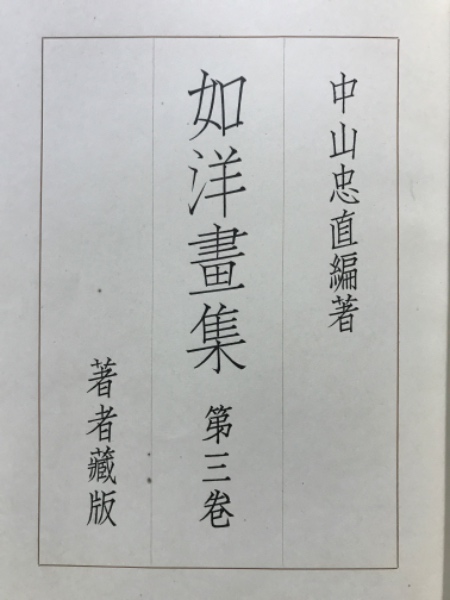 中山忠直編著
如洋畫集 第三卷
著者藏版